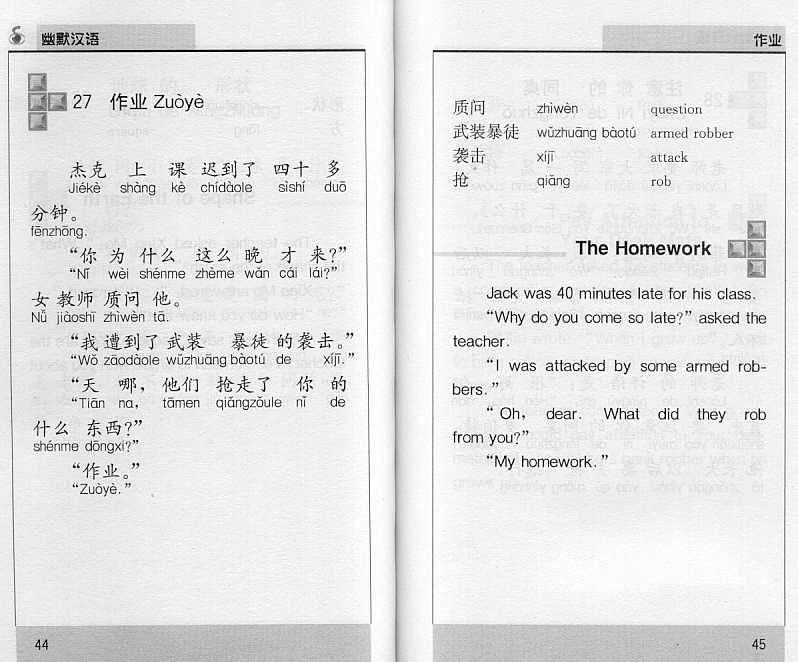 幽默汉语
27 作业 Zuòyè
杰克 上 课 迟到了 四十 多
Jiékè shàng kè chídàole sìshí duō
分钟。
fēnzhōng.
“你 为 什么 这么 晚 才 来?”
“Nǐ wèi shénme zhème wǎn cái lái?”
女 教师 质问 他。
Nǚ jiàoshī zhìwèn tā.
“我 遭到了 武装 暴徒 的 袭击。”
“Wǒ zāodàole wǔzhuāng bàotú de xíjī.”
“天 哪, 他们 抢走了 你 的
“Tiān na, tāmen qiǎngzǒule nǐ de
什么 东西?”
shénme dōngxi?”
“作业。”
“Zuòyè.”
44
作业
质问 zhìwèn question
武装暴徒 wǔzhuāng bàotú armed robber
袭击 xíjī attack
抢 qiǎng rob
The Homework
Jack was 40 minutes late for his class.
“Why do you come so late?” asked the
teacher.
“I was attacked by some armed rob-
bers.”
“Oh, dear. What did they rob
from you?”
“My homework.”
45